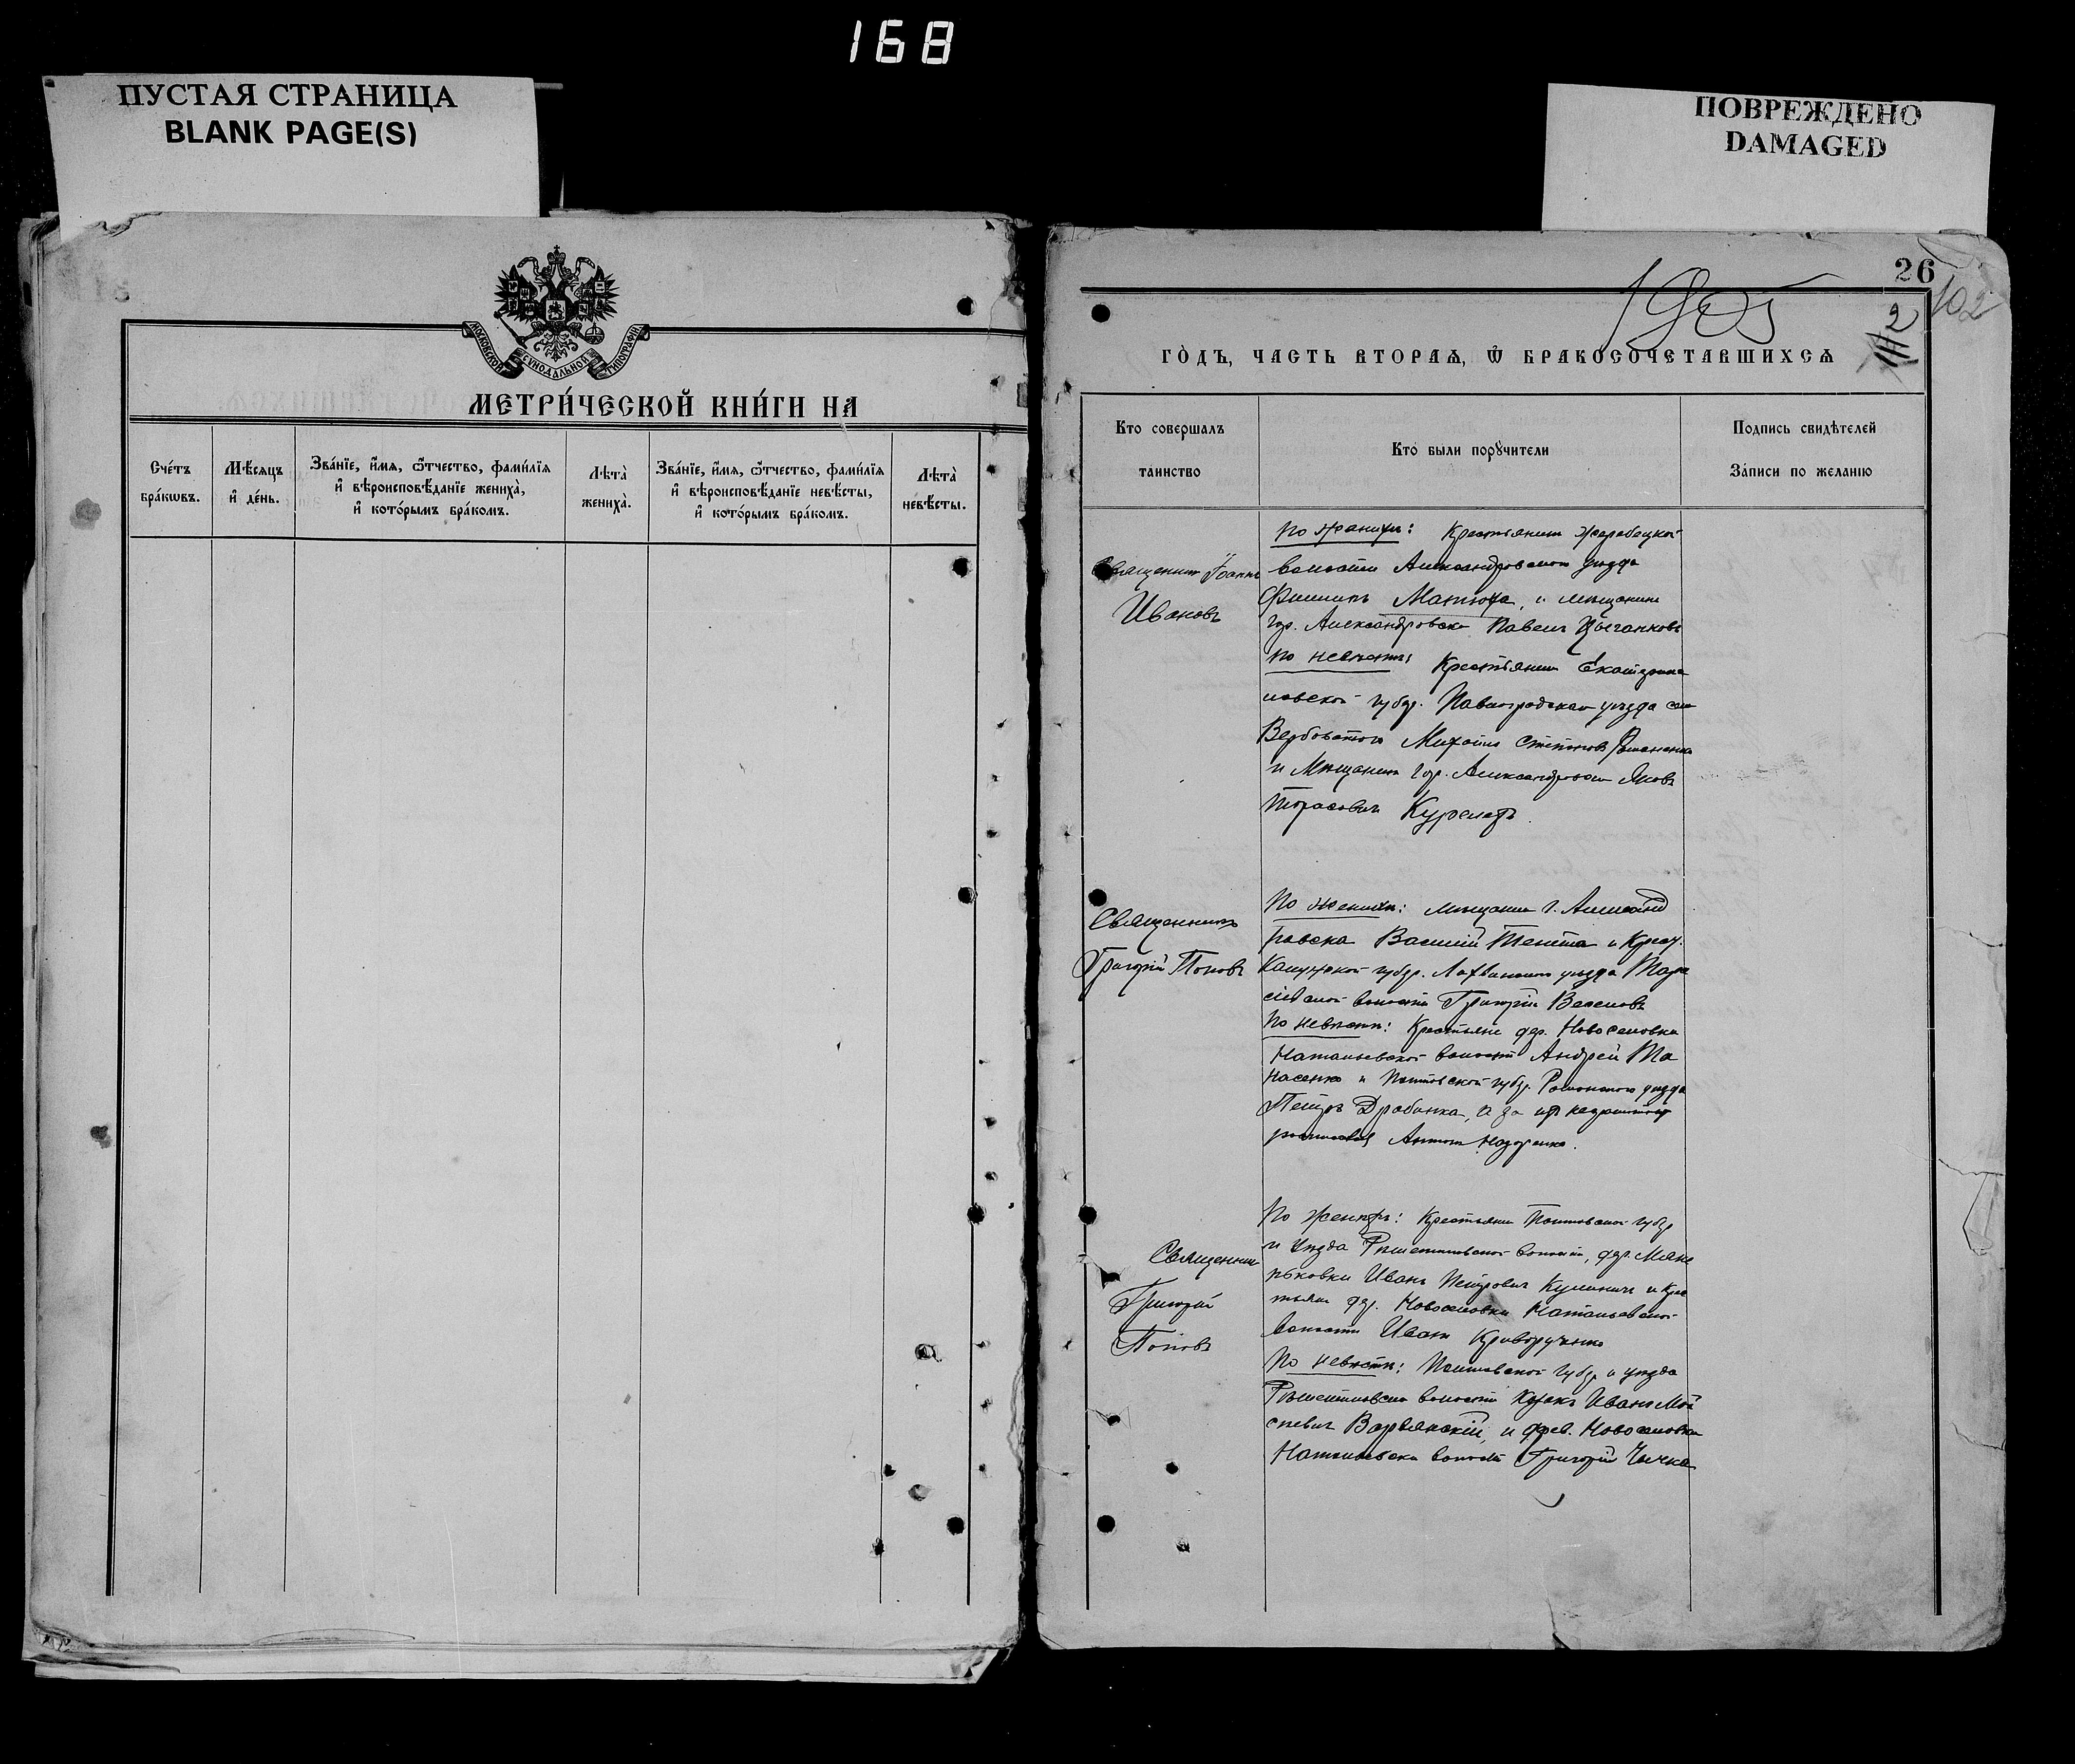 168
ПУСТАЯ СТРАНИЦА
BLANK PAGE(S)
ПОВРЕЖДЕНО
DAMAGED
МОСКОВСКОЙ СУНОДАЛЬНОЙ ТИПОГРАФІИ
МЕТРИ́ЧЕСКОЙ КНИ́ГИ НА
Сче́тъ бра́кѡвъ.
Мѣ́сяцъ и҆ де́нь.
Зва́нїе, и҆́мѧ, ѻ҆́тчество, фами́лїѧ и҆ вѣроисповѣ́данїе жениха̀, и҆ кото́рымъ бра́комъ.
Лѣта̀ жениха̀.
Зва́нїе, и҆́мѧ, ѻ҆́тчество, фами́лїѧ и҆ вѣроисповѣ́данїе невѣ́сты, и҆ кото́рымъ бра́комъ.
Лѣта̀ невѣ́сты.
26
102
1905
2
ГО́ДЪ, ЧАСТЬ ВТОРАѦ, Ѡ҆ БРАКОСОЧЕТАВШИХСѦ
Кто совершалъ таинство
Кто были порꙋчители
Подпись свидѣтелей Записи по желанію
Священник Іоанн
Ивановъ
По женихѣ: Крестьянин Жеребецкой
волости Александровского уѣзда
Филиппъ Матюха, и мѣщанин
гор. Александровска Павелъ Цыганковъ
По невѣстѣ: Крестьянин Екатерино
славской губер. Павлоградского уѣзда
Вербоватого Михаил Степановъ Романенко
и Мѣщанин гор. Александровска Яковъ
Тарасович
Священникъ
Григорій Поповъ
По женихѣ: мѣщанин г. Александ
ровска Василій Тенета и Крест.
Калужской губер. Лихвинского уѣзда
волости Григорій Веселовъ
По невѣстѣ: Крестьяне дер. Новоселовка
Натальевской волости Андрей Та
насенко и Полтавской губер. Роменского уѣзда
Петръ Дробинка, а за
росписался Антон Назаренко.
Священник
Григорій
Поповъ
По женихѣ: Крестьянин Полтавской губер
и Уѣзда Рѣшетиловской волости, дер.
Иванъ Петрович и Крес
тьянин дер. Новоселовки Натальевской
волости Иван Криворучко
По невѣстѣ: Полтавской губер и уѣзда
Рѣшетиловской волости Козакъ Иванъ Мой
сеевич Варвянскій, и дерев. Новоселовки
Натальевской волости Григорій Чичка